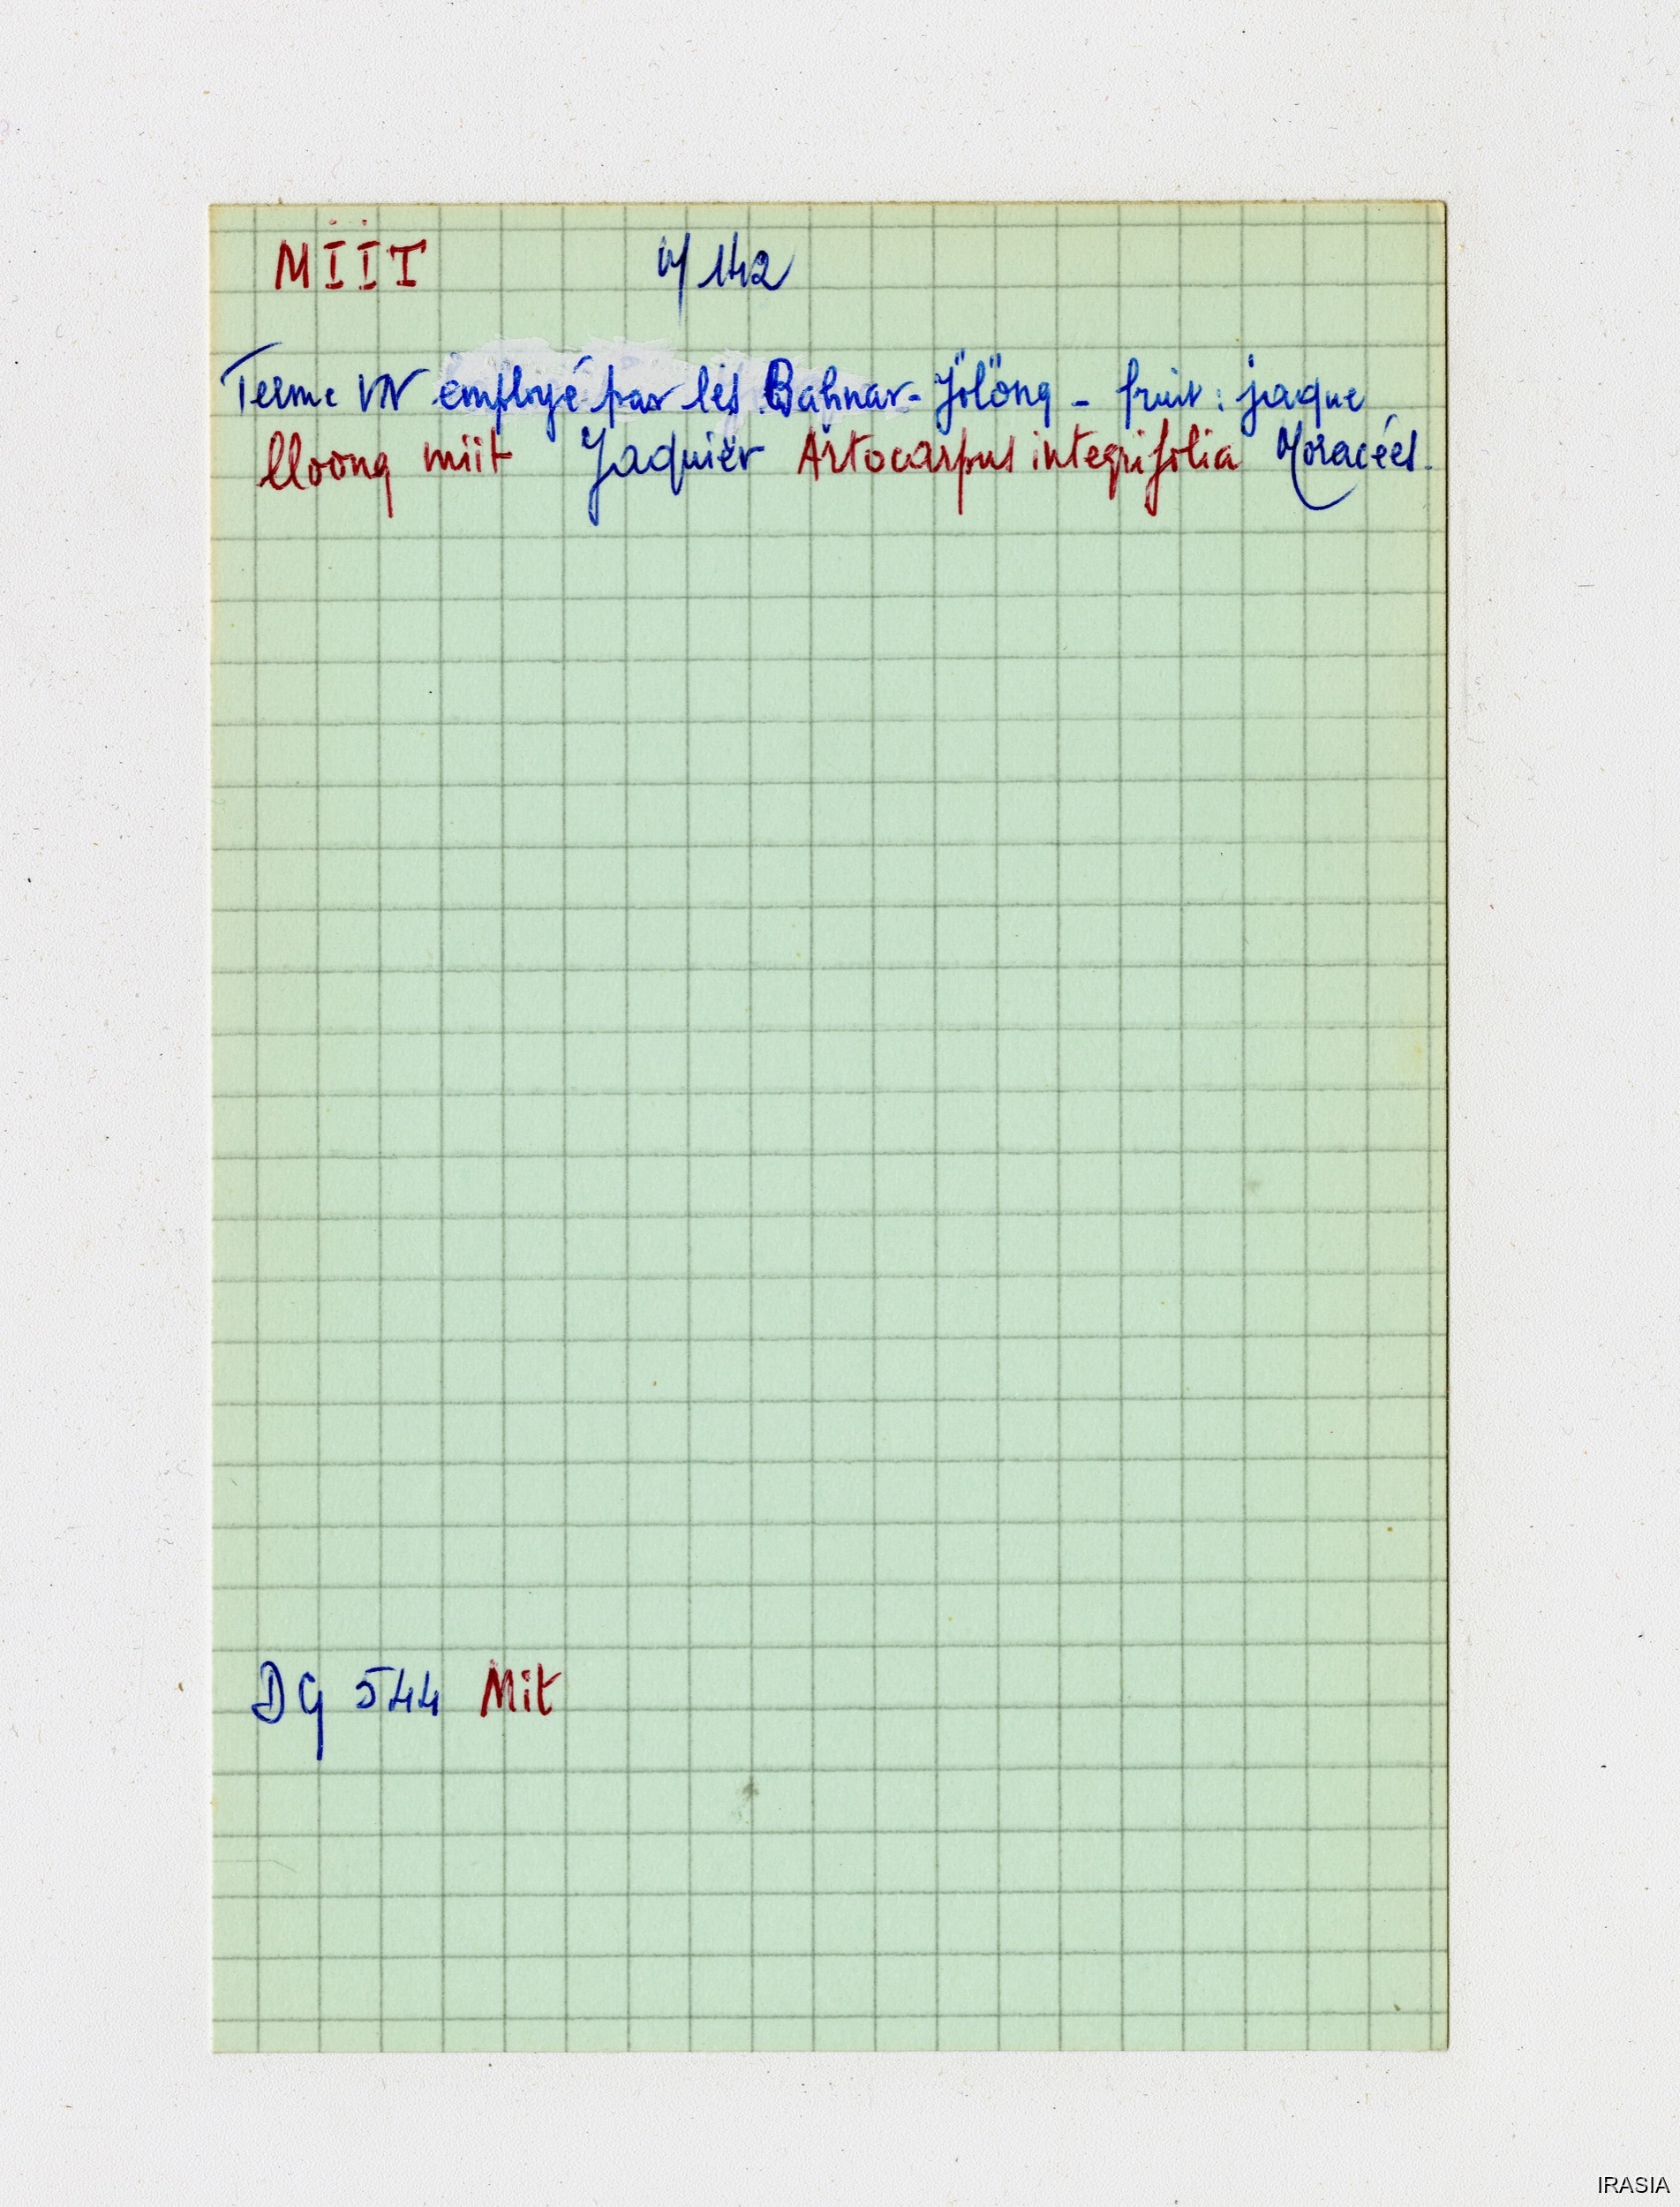 MIIT M 142
Terme VN employé par les Bahnar-Jölöng - fruit : jaque
lloong miit Jaquier Artocarpus integrifolia Moracées.
DG 544 Mit
IRASIA